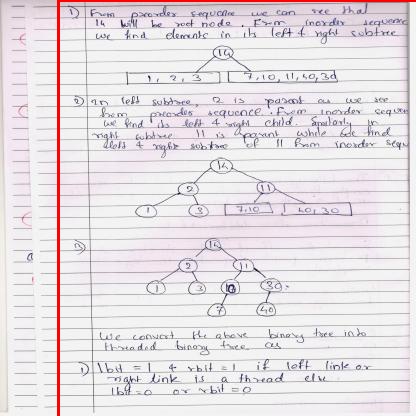 1) From preorder sequence we can see that
14 will be root node. From inorder sequence
we find elements in its left & right subtree
14
1, 2, 3 7,10, 11, 40, 30
2) In left subtree, 2 is parent as we see
from preorder sequence. From inorder sequen
we find its left & right child. Similarly in
right subtree 11 is parent while we find
left & right subtree of 11 from inorder sequ
14
2 11
1 3 7,10 40, 30
3)
14
2 11
1 3 10 30
7 40
We convert the above binary tree into
threaded binary tree as
1) lbit = 1 & rbit = 1 if left link or
right link is a thread else
lbit=0 or rbit=0